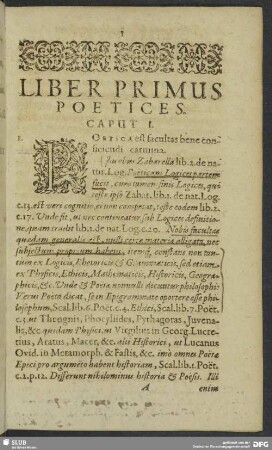 1
LIBER PRIMUS
POETICES.
CAPUT I.
1. POETICA est facultas bene con-
ficiendi carmina.
Jacobus Zabarella lib. 2. de na-
tur. Log. Poeticam Logicæ partem
facit, cum tamen finis Logicæ, qui
teste ipso Zabar. lib. 1. de nat. Log.
c. 13. est vera cognitio, ei non competat, teste eodem lib. 2.
c. 17. Unde fit, ut nec contineatur sub Logices definitio-
ne, quam tradit lib. 1. de nat. Log. c. 20. Nobis facultas
quædam generalis est, nulli certæ materiæ alligata, nec
subjectum proprium habens, itemq; constans non tan-
tum ex Logica, Rhetorica & Grammatica, sed etiam
ex Physicis, Ethicis, Mathematicis, Historicis, Geogra-
phicis, &c. Unde & Poëtæ nonnulli dicuntur philosophi:
Verus Poëta dicat, se in Epigrammate oportere esse philo-
sophum, Scal. lib. 6. Poët. c. 4. Ethici, Scal. lib. 7. Poët.
c. 1. ut Theognis, Phocylides, Pythagoras, Juvena-
lis, &c. quidam Physici, ut Virgilius in Georg. Lucre-
tius, Aratus, Macer, &c. alii Historici, ut Lucanus
Ovid. in Metamorph. & Fastis, &c. imò omnes Poëtæ
Epici pro argumēto habent historiam, Scal. lib. 1. Poët.
c. 2. p. 12. Differunt nihilominus historia & Poësis. Illi
A enim
SLUB
DFG